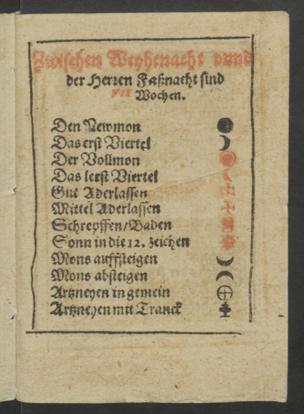 Zwischen Weyhenacht vnnd
der Herren Faßnacht sind
vii Wochen.
Den Newmon
Das erst Viertel
Der Vollmon
Das letst Viertel
Gut Aderlassen
Mittel Aderlassen
Schrepffen/Baden
Sonn in die 12. zeichen
Mons auffsteigen
Mons absteigen
Artzneyen in gemein
Artzneyen mit Tranck